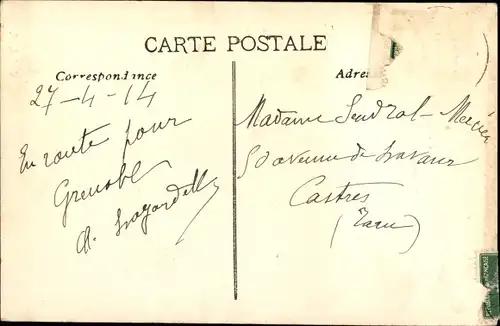 CARTE POSTALE
Correspondance
Adres
27-4-14
En route pour
Grenoble
Madame Sendral-Mercier
50 avenue de Lavaur
Castres
(Tarn)